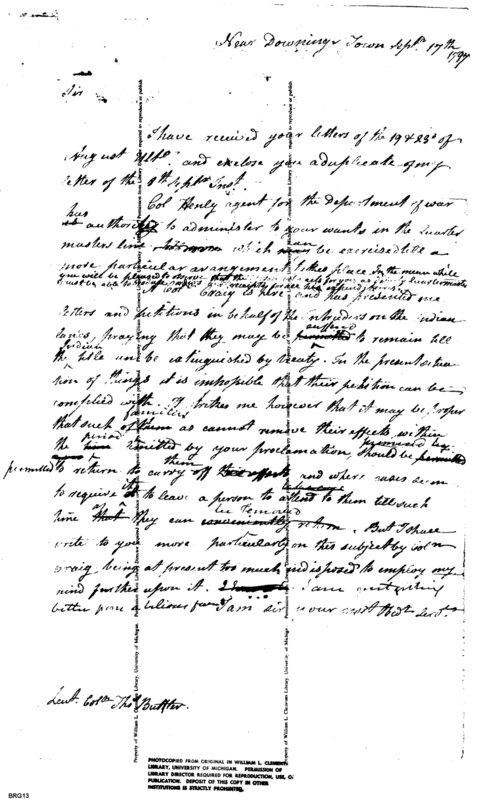 Near Downings Town Septr. 17th
1797
Sir
I have received your letters of the 19 & 23d of
August Ulto. and enclose you a duplicate of my
letter of the 9th Septr. Inst.
Col Henly agent for the Department of war
has authority to administer to your wants in the Quarter
masters line which may be exercised till a
more particular arrangement takes place. In the mean while
you will be pleased to
Craig is here and has presented me
letters and petitions in behalf of the Intruders on the Indian
lands, praying that they may be permitted suffered to remain till
the Indian title can be extinguished by treaty. In the present situa-
tion of things it is impossible that their petition can be
complied with. It strikes me however that it may be proper
that such of them families as cannot remove their effects within
the time period limited by your proclamation, should be permitted
permitted to return to carry them off their effects and where cases seem
to require it to leave a person to attend to them till such
time that they can be removed conveniently return. But I shall
write to you more particularly on this subject by Coln
Craig being at present too much indisposed to employ my
mind further upon it. I am
better from a bilious fever I am sir your most Obdt. Servt.
Lieut. Coln. Thos. Butler.
Property of William L. Clements Library, University of Michigan
Property of William L. Clements Library, University of Michigan
PHOTOCOPIED FROM ORIGINAL IN WILLIAM L. CLEMENTS
LIBRARY, UNIVERSITY OF MICHIGAN. PERMISSION OF
LIBRARY DIRECTOR REQUIRED FOR REPRODUCTION, USE, O
PUBLICATION. DEPOSIT OF THIS COPY IN OTHER
INSTITUTIONS IS STRICTLY PROHIBITED.
BRG13